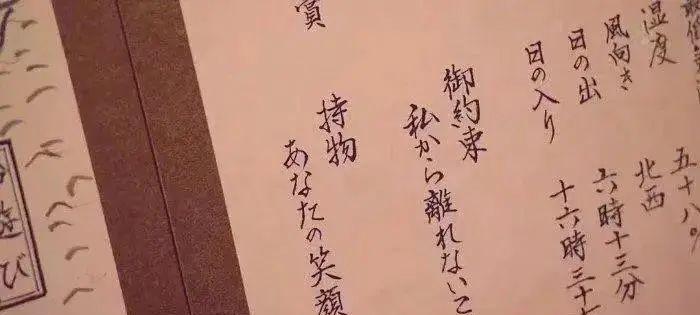 湿度 五十八
風向き 北西
日の出 六時十三分
日の入り 十六時三十
御約束
私から離れないこ
持物
あなたの笑顔
遊び